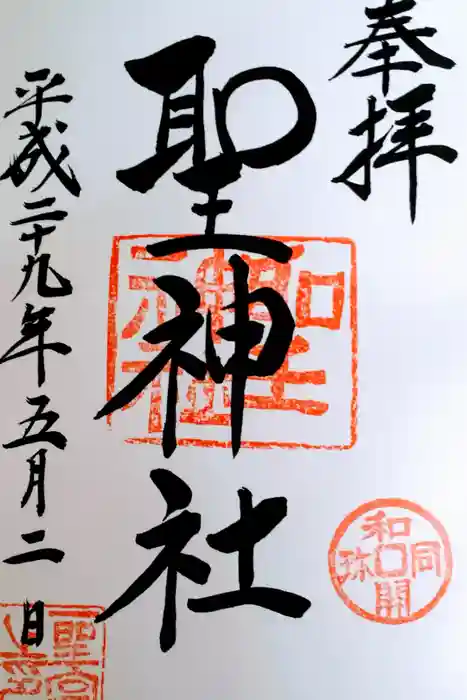 奉拝
聖神社
平成二十九年五月二日
聖神社
和同開珎